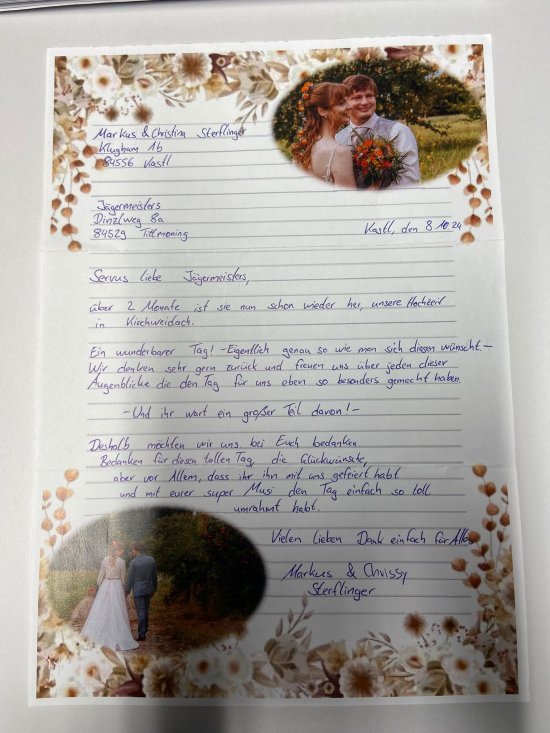 Markus & Christina Sterflinger
Klugham 1b
84556 Kastl
Jägermeisters
Dinzlweg 8a
84529 Tittmoning
Kastl, den 8.10.24
Servus liebe Jägermeisters,
über 2 Monate ist sie nun schon wieder her, unsere Hochzeit
in Kirchweidach.
Ein wunderbarer Tag! - Eigentlich genau so wie man sich diesen wünscht. -
Wir denken sehr gern zurück und freuen uns über jeden dieser
Augenblicke die den Tag für uns eben so besonders gemacht haben.
- Und ihr wart ein großer Teil davon! -
Deshalb möchten wir uns bei Euch bedanken.
Bedanken für diesen tollen Tag, die Glückwünsche,
aber vor Allem, dass ihr ihn mit uns gefeiert habt
und mit eurer super Musi den Tag einfach so toll
umrahmt habt.
Vielen lieben Dank einfach für Alles
Markus & Chrissy
Sterflinger